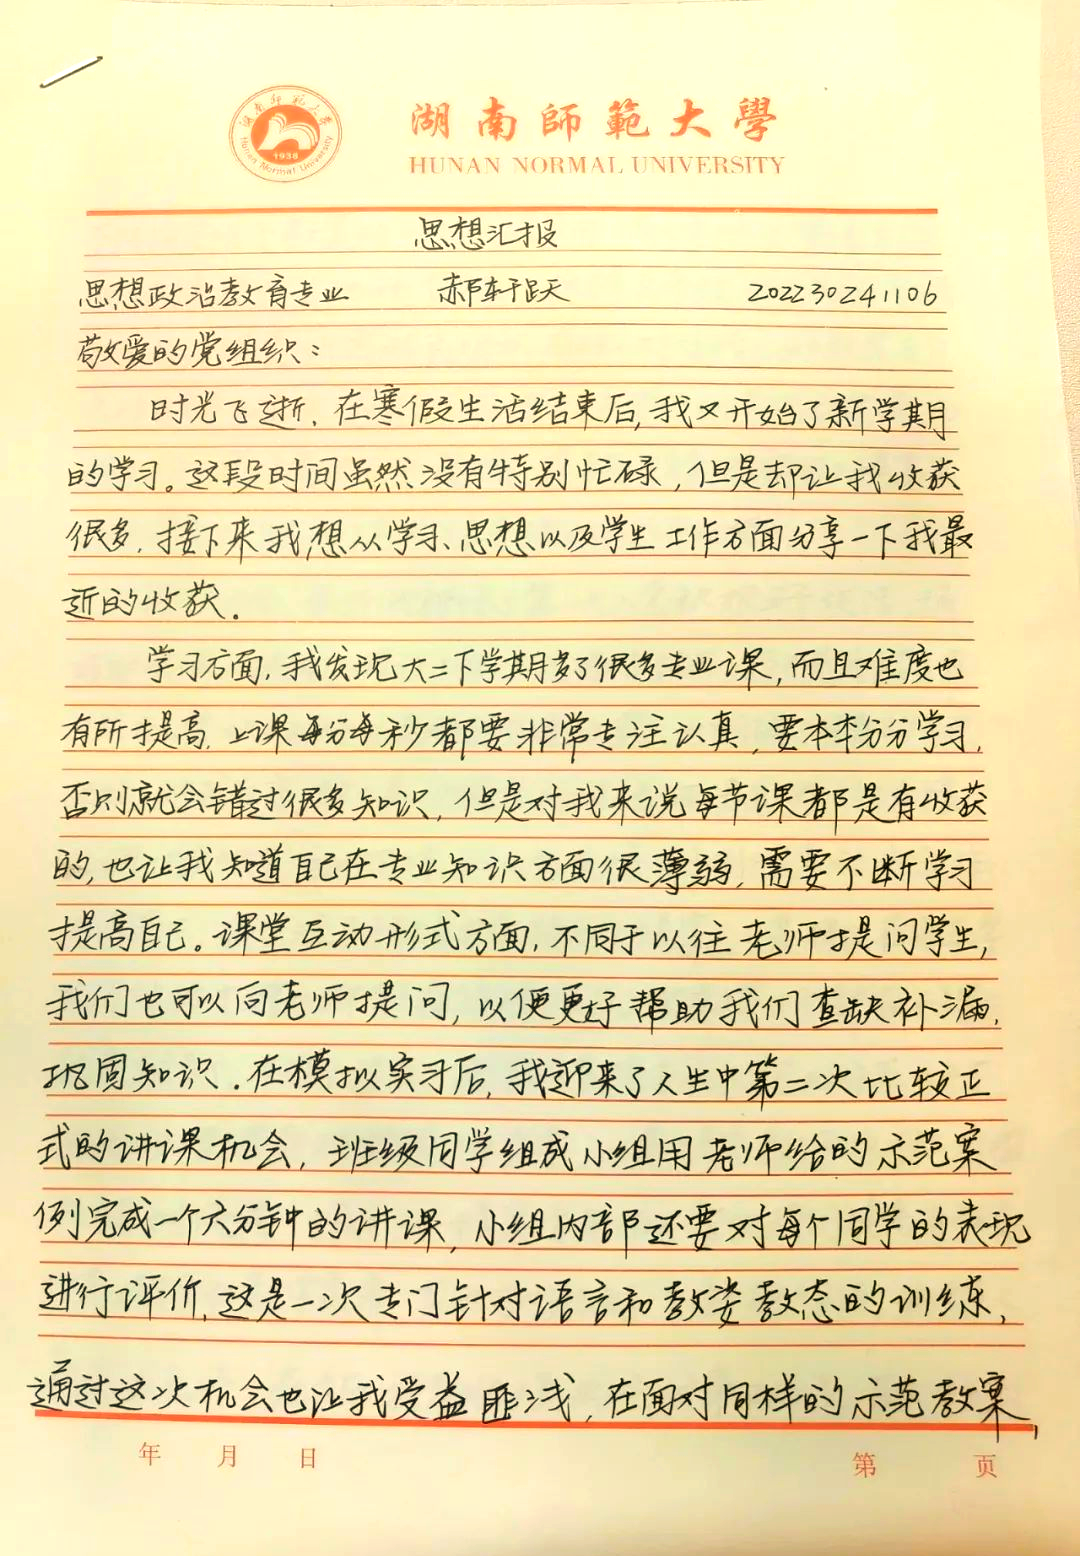 湖南师范大学
Hunan Normal University
1938
湖南師範大學
HUNAN NORMAL UNIVERSITY
思想汇报
思想政治教育专业 郝轩跃 202230241106
敬爱的党组织：
时光飞逝，在寒假生活结束后，我又开始了新学期
的学习。这段时间虽然没有特别忙碌，但是却让我收获
很多，接下来我想从学习、思想以及学生工作方面分享一下我最
近的收获。
学习方面，我发现大二下学期多了很多专业课，而且难度也
有所提高，上课每分每秒都要非常专注认真，要本本分分学习，
否则就会错过很多知识，但是对我来说每节课都是有收获
的，也让我知道自己在专业知识方面很薄弱，需要不断学习
提高自己。课堂互动形式方面，不同于以往老师提问学生，
我们也可以向老师提问，以便更好帮助我们查缺补漏，
巩固知识。在模拟实习后，我迎来了人生中第二次比较正
式的讲课机会，班级同学组成小组用老师给的示范案
例完成一个六分钟的讲课，小组内部还要对每个同学的表现
进行评价，这是一次专门针对语言和教姿教态的训练，
通过这次机会也让我受益匪浅，在面对同样的示范教案，
年 月 日 第 页